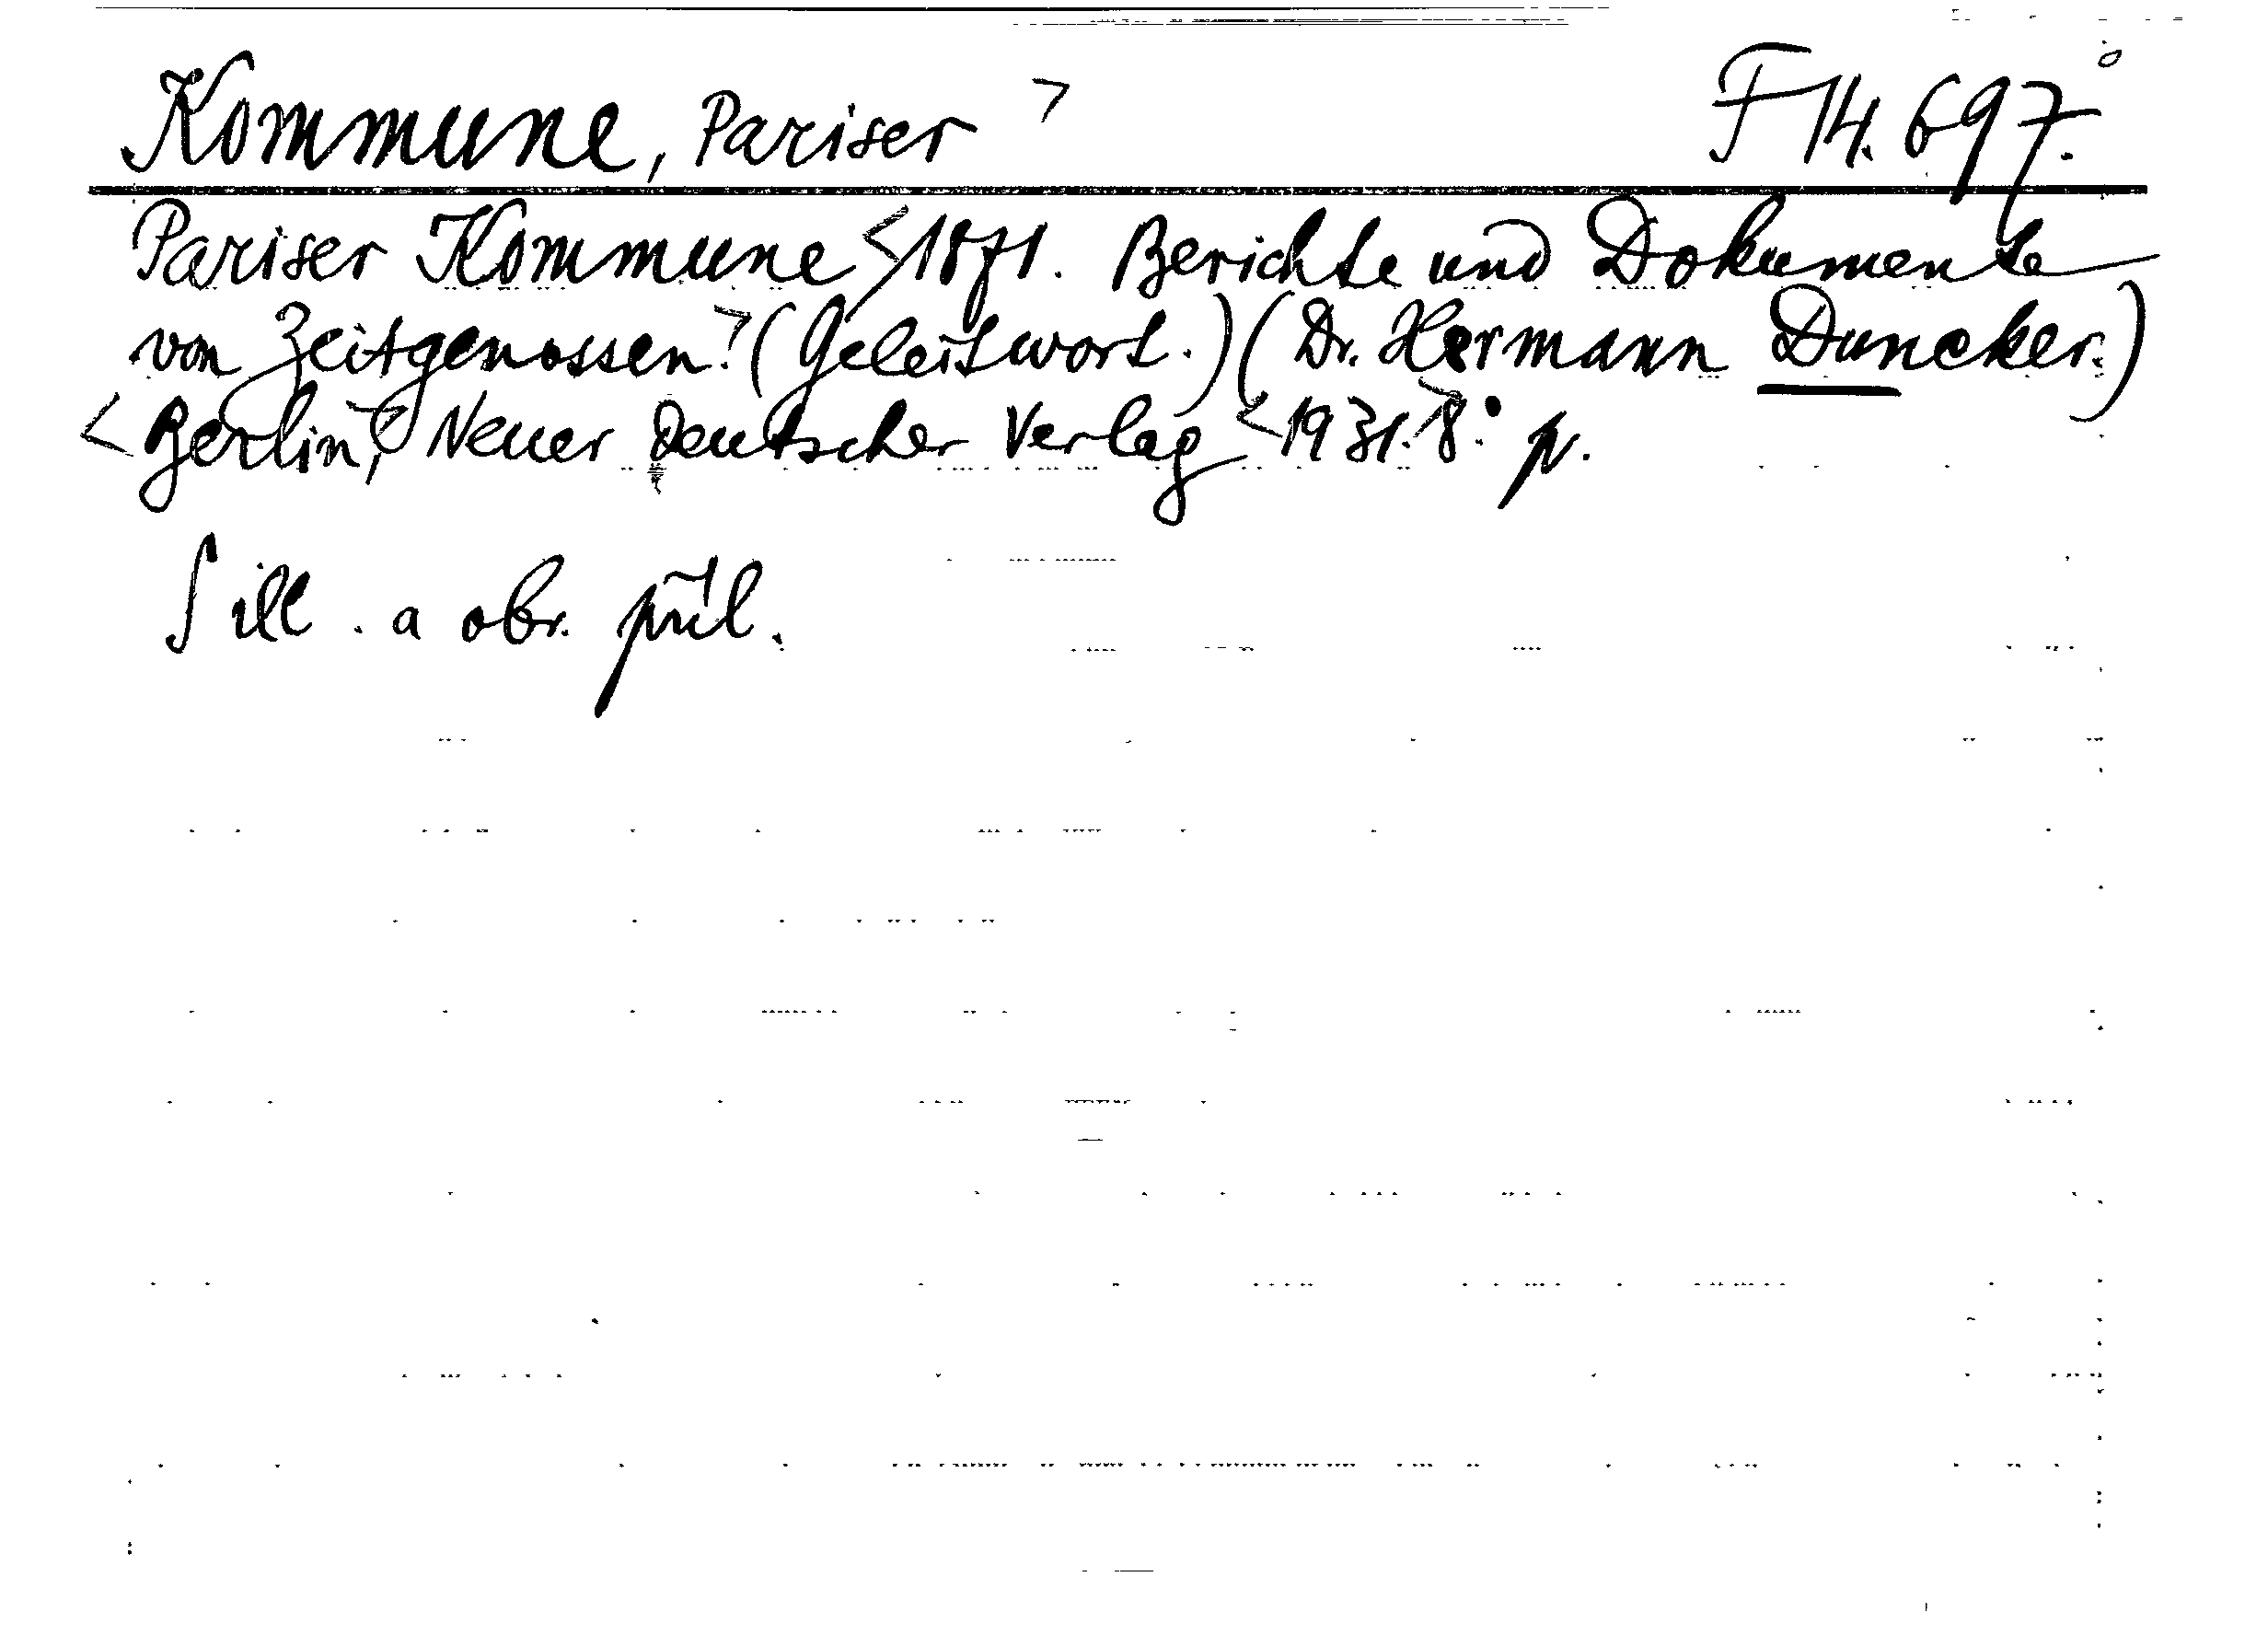 Kommune, Pariser > F 14.697.
Pariser Kommune < 1871. Berichte und Dokumente
von Zeitgenossen.> (Geleitwort.) (Dr. Hermann Duncker.)
< Berlin,> Neuer Deutscher Verlag < 1931.> 8.° p.
S ill. a obr. příl.